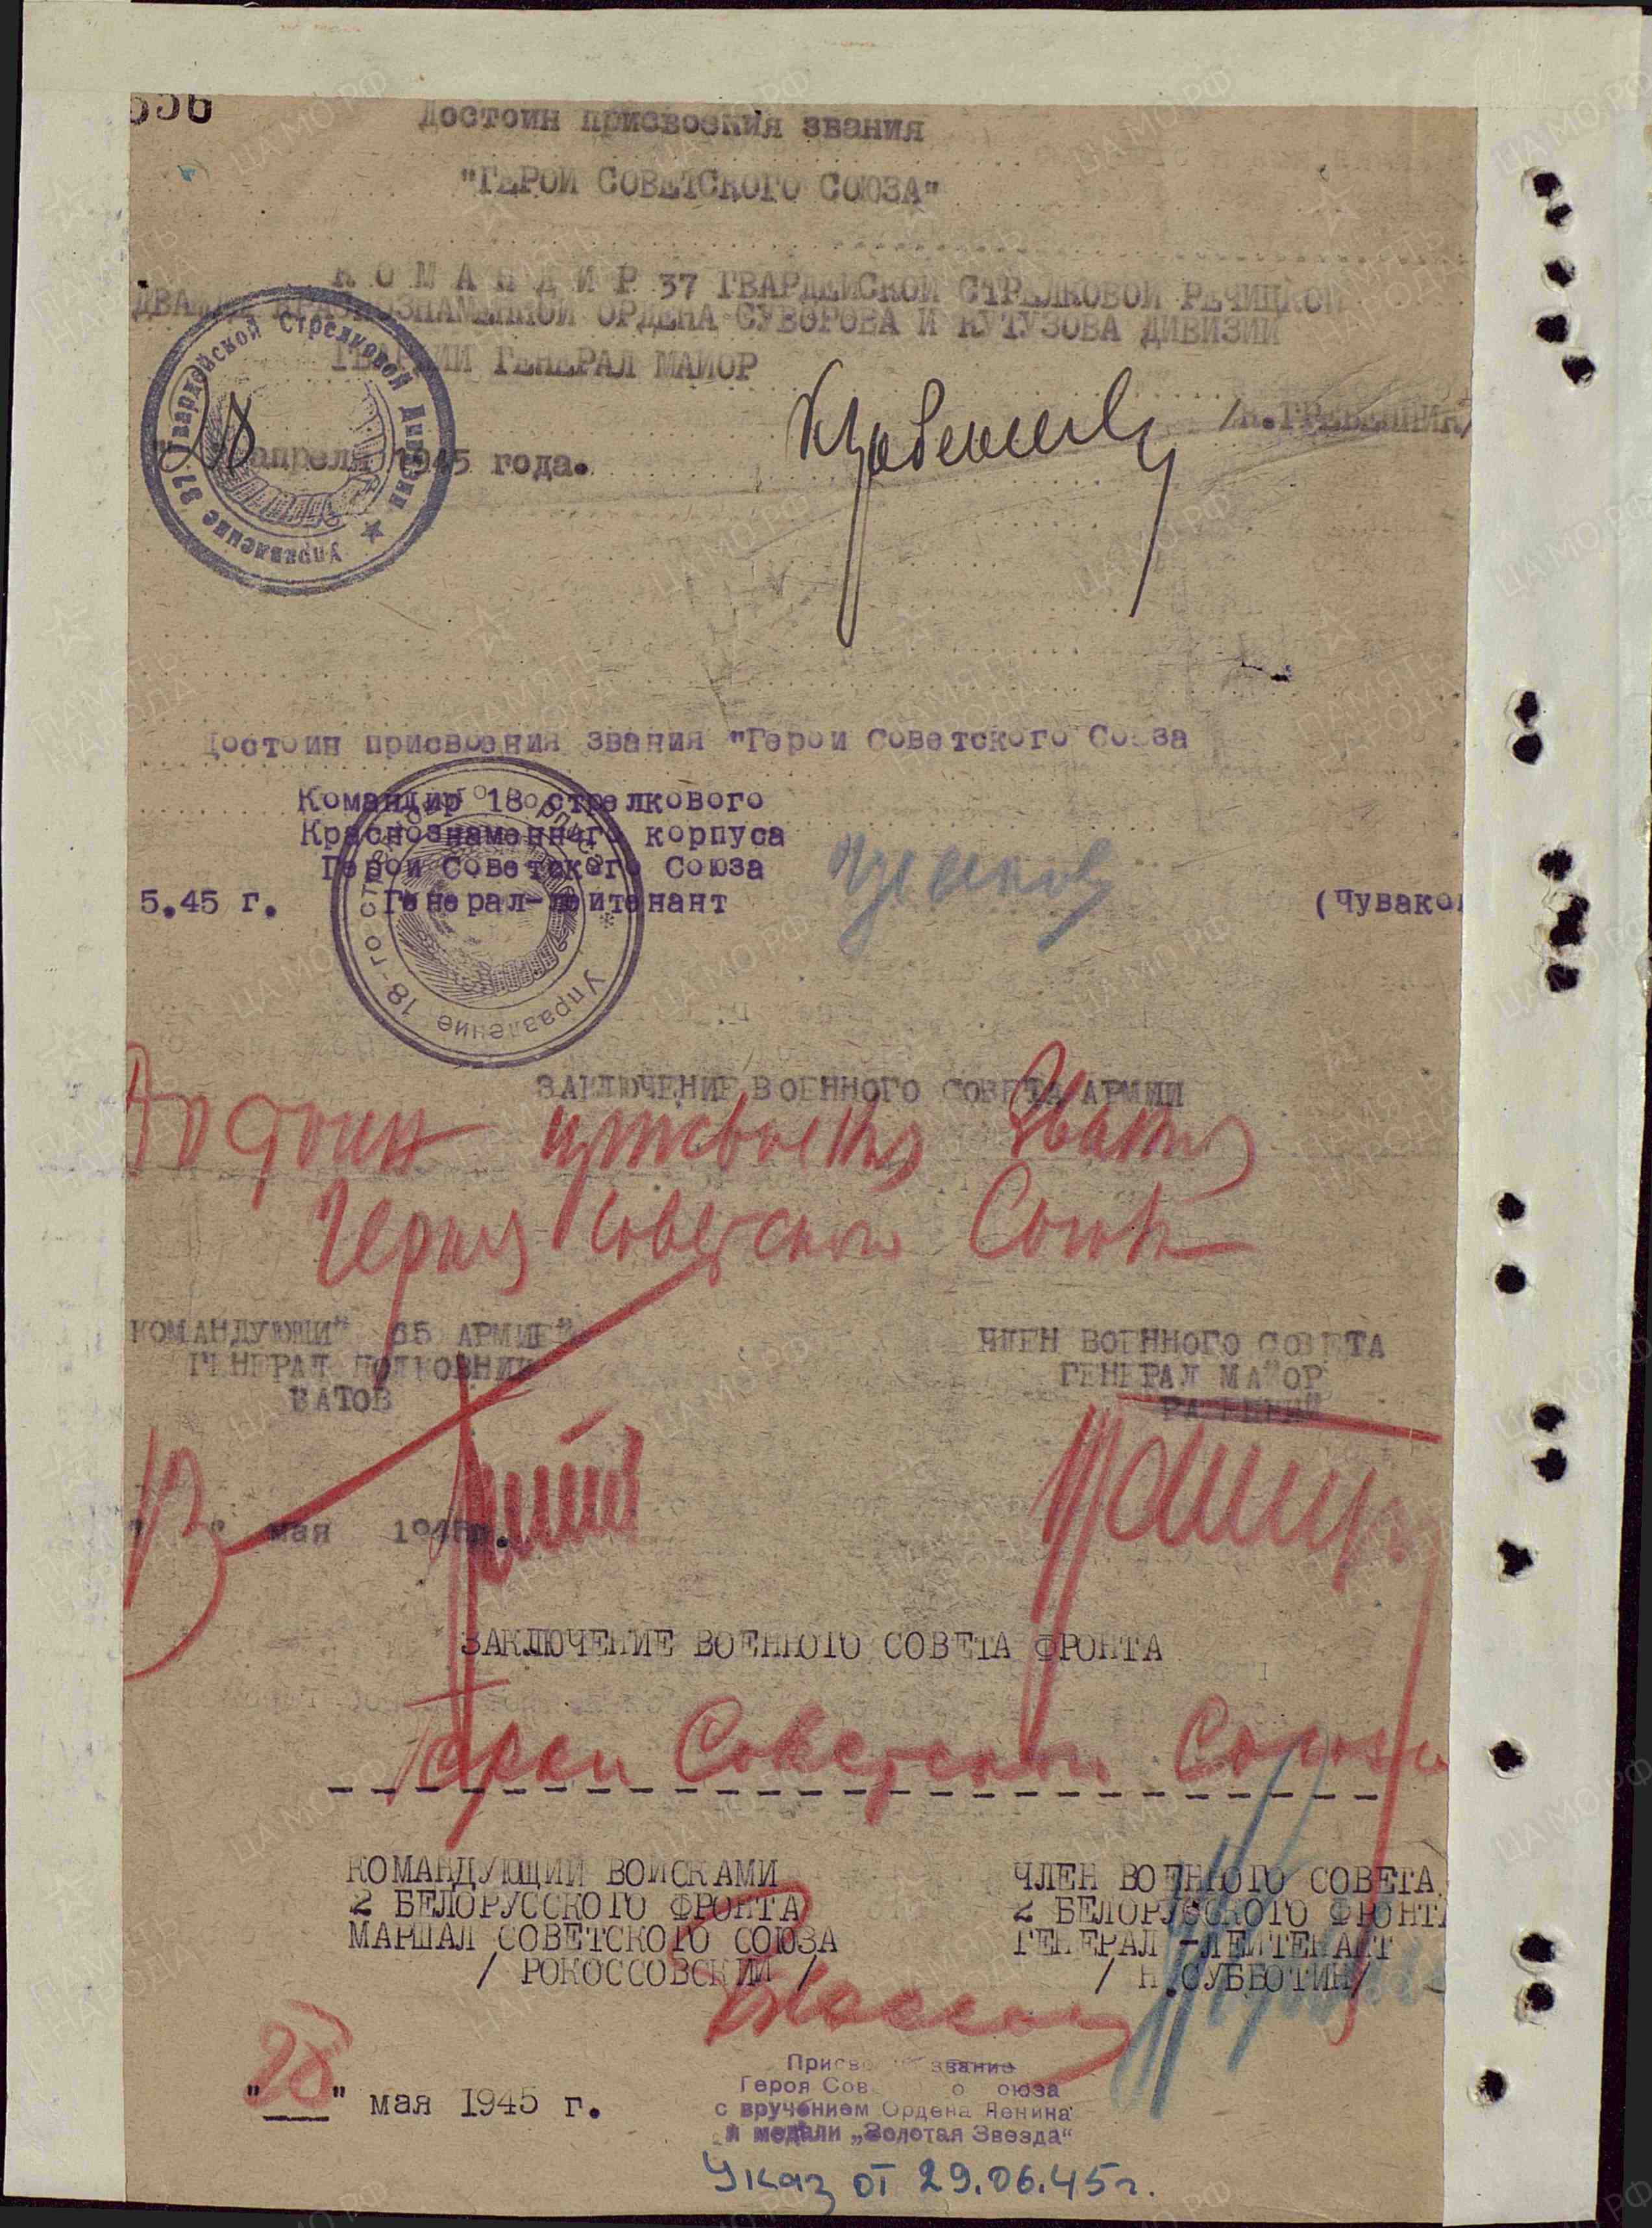 336
Достоин присвоения звания
"ГЕРОЙ СОВЕТСКОГО СОЮЗА"
КОМАНДИР 37 ГВАРДЕЙСКОЙ СТРЕЛКОВОЙ РЕЧИЦКОЙ
ДВАЖДЫ КРАСНОЗНАМЕННОЙ ОРДЕНА СУВОРОВА И КУТУЗОВА ДИВИЗИИ
ГВАРДИИ ГЕНЕРАЛ МАЙОР
/К.ГРЕБЕННИК/
28 апреля 1945 года.
Управление 37 Гвардейской Стрелковой Дивизии
Достоин присвоения звания "Герой Советского Союза
Командир 18 стрелкового
Краснознаменного корпуса
Герой Советского Союза
5.45 г. Генерал-лейтенант (Чуваков
Управление 18-го стрелкового корпуса
ЗАКЛЮЧЕНИЕ ВОЕННОГО СОВЕТА АРМИИ
Достоин присвоения звания
Героя Советского Союза
КОМАНДУЮЩИЙ 65 АРМИЕЙ
ГЕНЕРАЛ ПОЛКОВНИК
БАТОВ
ЧЛЕН ВОЕННОГО СОВЕТА
ГЕНЕРАЛ МАЙОР
РАДЕЦКИЙ
мая 1945г.
ЗАКЛЮЧЕНИЕ ВОЕННОГО СОВЕТА ФРОНТА
Героя Советского Союза
КОМАНДУЮЩИЙ ВОЙСКАМИ
2 БЕЛОРУССКОГО ФРОНТА
МАРШАЛ СОВЕТСКОГО СОЮЗА
/ РОКОССОВСКИЙ /
ЧЛЕН ВОЕННОГО СОВЕТА
2 БЕЛОРУССКОГО ФРОНТА
ГЕНЕРАЛ -ЛЕЙТЕНАНТ
/ Н.СУББОТИН/
"28" мая 1945 г.
Присвоено звание
Героя Советского Союза
с вручением Ордена Ленина
и медали „Золотая Звезда"
Указ от 29.06.45г.